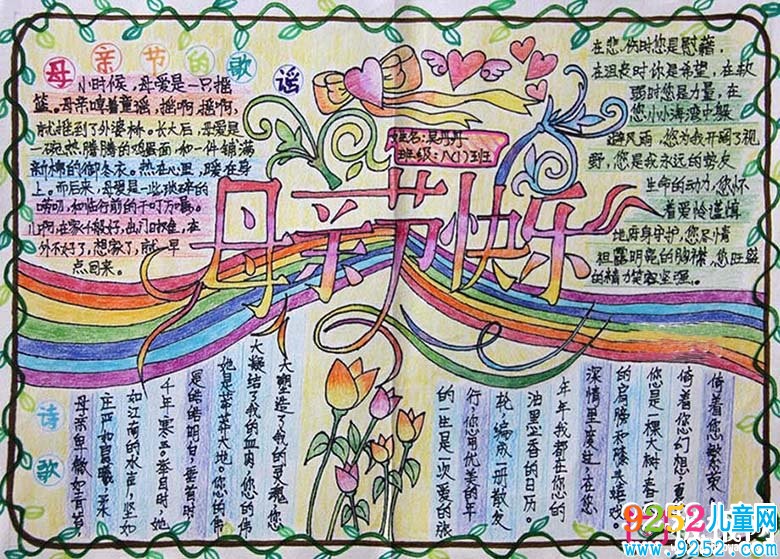 母亲节的歌谣
小时候,母爱是一只摇
篮。母亲哼着童谣,摇啊,摇啊,
就摇到了外婆桥。长大后,母爱是
一碗热腾腾的鸡蛋面,和一件铺满
新棉的御冬衣。热在心里,暖在身
上。而后来,母爱是一些琐碎的
唠叨,和临行前的千叮万嘱。
儿啊,在家千般好,出门日日难,在
外不好了,想家了,就早一早
点回来。
姓名:吴丹丹
班级:八(1)班
母亲节快乐
在悲伤时您是慰藉,
在沮丧时你是希望,在软
弱时您是力量,在
您小小海湾中躲
避风雨,您为我开阔了视
野,您是我永远的挚友
生命的动力,您怀
着爱怜谨慎
地府身守护,您尽情
袒露明亮的胸襟,您旺盛
的精力笑容坚强。
诗歌
母亲卑微如青苔,
庄严如晨曦,柔
如江南的水声,坚如
千年寒玉。举目时,她
是皓皓明月,垂首时
她是莽莽大地。您心的伟
大凝结了我的血肉,您心的伟
大塑造了我的灵魂,您
的一生是一次爱的旅
行,您用优美的年
轮,编成一册散发
油墨香的日历。
年年我都在您的
深情里度过,在您
的肩膀和膝头嬉戏。
您是一棵大树,春
倚着您幻想,夏
倚着您繁荣
9252儿童网
www.9252.com